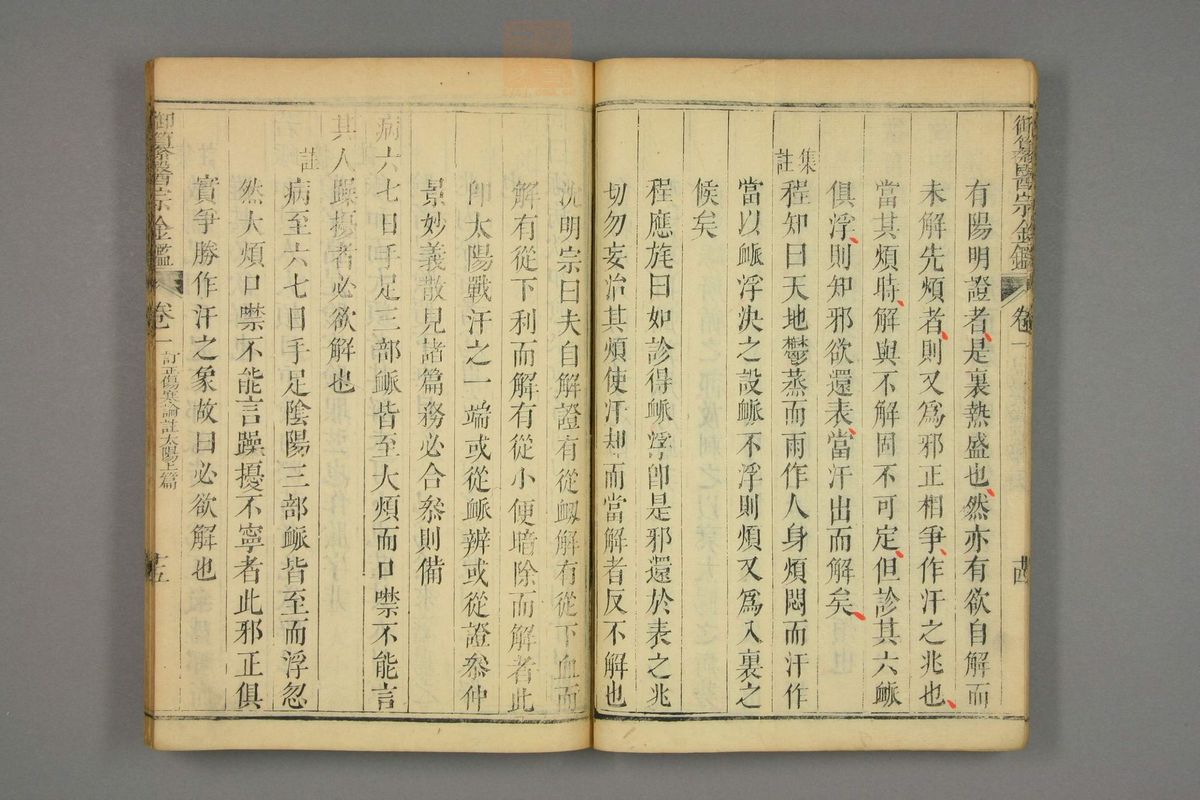 御纂醫宗金鑑 卷一 十四
有陽明證者是裏熱盛也然亦有欲自解而
未解先煩者則又爲邪正相爭作汗之兆也
當其煩時解與不解固不可定但診其六䘑
俱浮則知邪欲還表當汗出而解矣
集註
程知曰天地鬱蒸而雨作人身煩悶而汗作
當以䘑浮決之設䘑不浮則煩又爲入裏之
候矣
程應旄曰如診得䘑浮卽是邪還於表之兆
切勿妄治其煩使汗却而當解者反不解也
沈明宗曰夫自解證有從衂解有從下血而
解有從下利而解有從小便暗除而解者此
卽太陽戰汗之一端或從䘑辨或從證叅仲
景妙義散見諸篇務必合叅則備
病六七日手足三部䘑皆至大煩而口噤不能言
其人躁擾者必欲解也
註
病至六七日手足陰陽三部䘑皆至而浮忽
然大煩口噤不能言躁擾不寧者此邪正俱
實爭勝作汗之象故曰必欲解也
御纂醫宗金鑑 卷一 訂正傷寒論註太陽上篇 十五